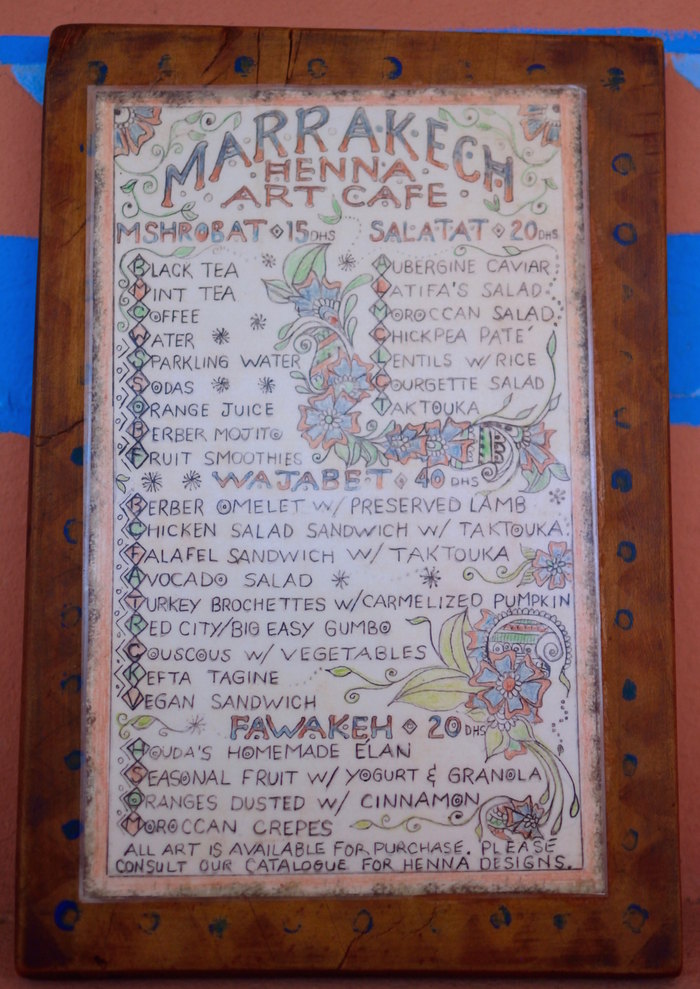 MARRAKECH
HENNA
ART CAFE
MSHROBAT 15DHS
BLACK TEA
MINT TEA
COFFEE
WATER
SPARKLING WATER
SODAS
ORANGE JUICE
BERBER MOJITO
FRUIT SMOOTHIES
SALATAT 20DHS
AUBERGINE CAVIAR
LATIFA'S SALAD
MOROCCAN SALAD
CHICKPEA PATE´
LENTILS W/ RICE
COURGETTE SALAD
TAKTOUKA
WAJABET 40 DHS
BERBER OMELET W/ PRESERVED LAMB
CHICKEN SALAD SANDWICH W/ TAKTOUKA.
FALAFEL SANDWICH W/ TAKTOUKA
AVOCADO SALAD
TURKEY BROCHETTES W/CARMELIZED PUMPKIN
RED CITY/BIG EASY GUMBO
COUSCOUS W/ VEGETABLES
KEFTA TAGINE
VEGAN SANDWICH
FAWAKEH 20DHS
HOUDA'S HOMEMADE ELAN
SEASONAL FRUIT W/ YOGURT & GRANOLA
ORANGES DUSTED W/ CINNAMON
MOROCCAN CREPES
ALL ART IS AVAILABLE FOR PURCHASE. PLEASE
CONSULT OUR CATALOGUE FOR HENNA DESIGNS.